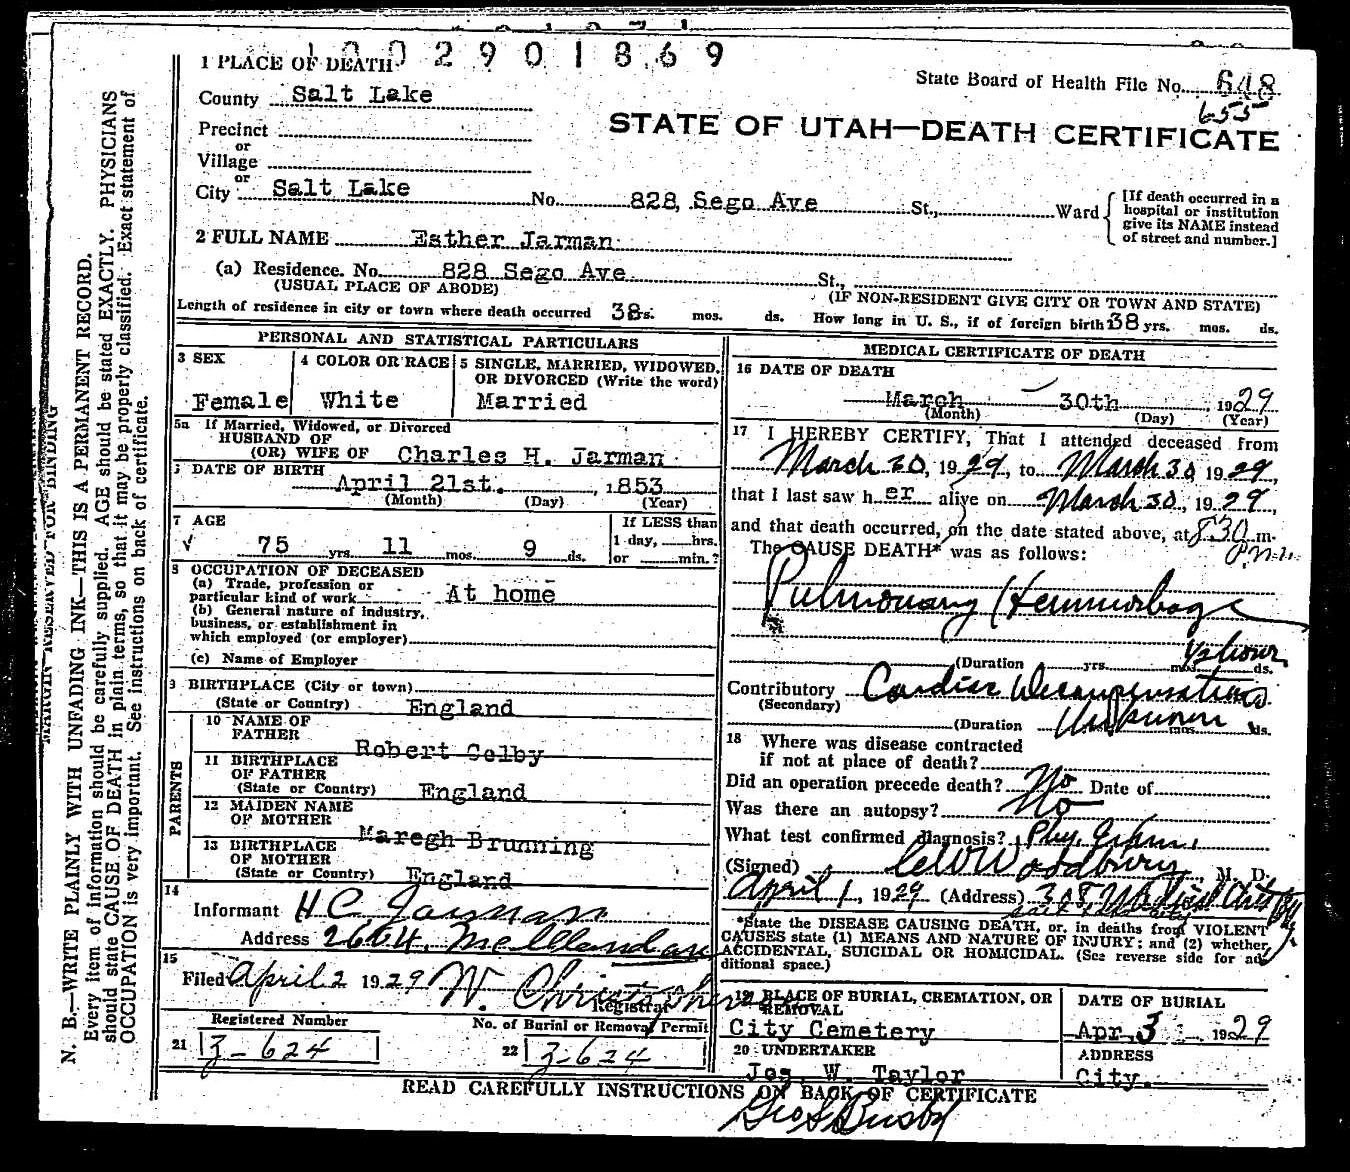 1002901869
1 PLACE OF DEATH
State Board of Health File No. 648
655
County Salt Lake
STATE OF UTAH—DEATH CERTIFICATE
Precinct
or
Village
or
City Salt Lake No. 828, Sego Ave St., Ward
[If death occurred in a
hospital or institution
give its NAME instead
of street and number.]
2 FULL NAME Esther Jarman
(a) Residence. No. 828 Sego Ave St.,
(USUAL PLACE OF ABODE) (IF NON-RESIDENT GIVE CITY OR TOWN AND STATE)
Length of residence in city or town where death occurred 38 yrs. mos. ds. How long in U. S., if of foreign birth 38 yrs. mos. ds.
PERSONAL AND STATISTICAL PARTICULARS
3 SEX
Female
4 COLOR OR RACE
White
5 SINGLE, MARRIED, WIDOWED,
OR DIVORCED (Write the word)
Married
5a If Married, Widowed, or Divorced
HUSBAND OF
(OR) WIFE OF Charles H. Jarman
DATE OF BIRTH
April 21st. , 1853
(Month) (Day) (Year)
7 AGE
75 yrs. 11 mos. 9 ds.
If LESS than
1 day, hrs.
or min.?
8 OCCUPATION OF DECEASED
(a) Trade, profession or
particular kind of work At home
(b) General nature of industry,
business, or establishment in
which employed (or employer)
(c) Name of Employer
9 BIRTHPLACE (City or town)
(State or Country) England
PARENTS
10 NAME OF
FATHER Robert Colby
11 BIRTHPLACE
OF FATHER
(State or Country) England
12 MAIDEN NAME
OF MOTHER Maregh Brunning
13 BIRTHPLACE
OF MOTHER
(State or Country) England
14
Informant H C Jarman
Address 2664
15
Filed April 2 1929 W. Christophersen
Registrar
Registered Number
21 3-624
No. of Burial or Removal Permit
22 3-624
MEDICAL CERTIFICATE OF DEATH
16 DATE OF DEATH
March 30th , 1929
(Month) (Day) (Year)
17 I HEREBY CERTIFY, That I attended deceased from
March 30, 1929, to March 30, 1929,
that I last saw her alive on March 30, 1929,
and that death occurred, on the date stated above, at 8 30 m.
P.m.
The CAUSE DEATH* was as follows:
Pulmonary Hemmorhage
(Duration yrs. mos. ds. 1/2 hour
Contributory Cardiac Decompensation
(Secondary)
(Duration Unknown mos. ds.
18 Where was disease contracted
if not at place of death?
Did an operation precede death? No Date of
Was there an autopsy? No
What test confirmed diagnosis? Phy. Exam.
(Signed) Woodbury, M. D.
April 1, 1929 (Address) 305 Medical Arts Bldg.
Salt Lake City
*State the DISEASE CAUSING DEATH, or, in deaths from VIOLENT
CAUSES state (1) MEANS AND NATURE OF INJURY; and (2) whether
ACCIDENTAL, SUICIDAL OR HOMICIDAL. (See reverse side for ad-
ditional space.)
19 PLACE OF BURIAL, CREMATION, OR
REMOVAL
City Cemetery
DATE OF BURIAL
Apr. 3 1929
20 UNDERTAKER
Jos. W. Taylor
ADDRESS
City.
READ CAREFULLY INSTRUCTIONS ON BACK OF CERTIFICATE
Geo S Busby
MARGIN RESERVED FOR BINDING
N. B.—WRITE PLAINLY WITH UNFADING INK—THIS IS A PERMANENT RECORD.
Every item of information should be carefully supplied. AGE should be stated EXACTLY. PHYSICIANS
should state CAUSE OF DEATH in plain terms, so that it may be properly classified. Exact statement of
OCCUPATION is very important. See instructions on back of certificate.